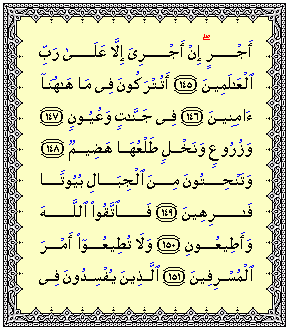 أَجْرٍ ۖ إِنْ أَجْرِىَ إِلَّا عَلَىٰ رَبِّ
ٱلْعَـٰلَمِينَ ١٤٥ أَتُتْرَكُونَ فِى مَا هَـٰهُنَآ
ءَامِنِينَ ١٤٦ فِى جَنَّـٰتٍ وَعُيُونٍ ١٤٧
وَزُرُوعٍ وَنَخْلٍ طَلْعُهَا هَضِيمٌ ١٤٨
وَتَنْحِتُونَ مِنَ ٱلْجِبَالِ بُيُوتًا
فَـٰرِهِينَ ١٤٩ فَٱتَّقُوا۟ ٱللَّهَ
وَأَطِيعُونِ ١٥٠ وَلَا تُطِيعُوٓا۟ أَمْرَ
ٱلْمُسْرِفِينَ ١٥١ ٱلَّذِينَ يُفْسِدُونَ فِى